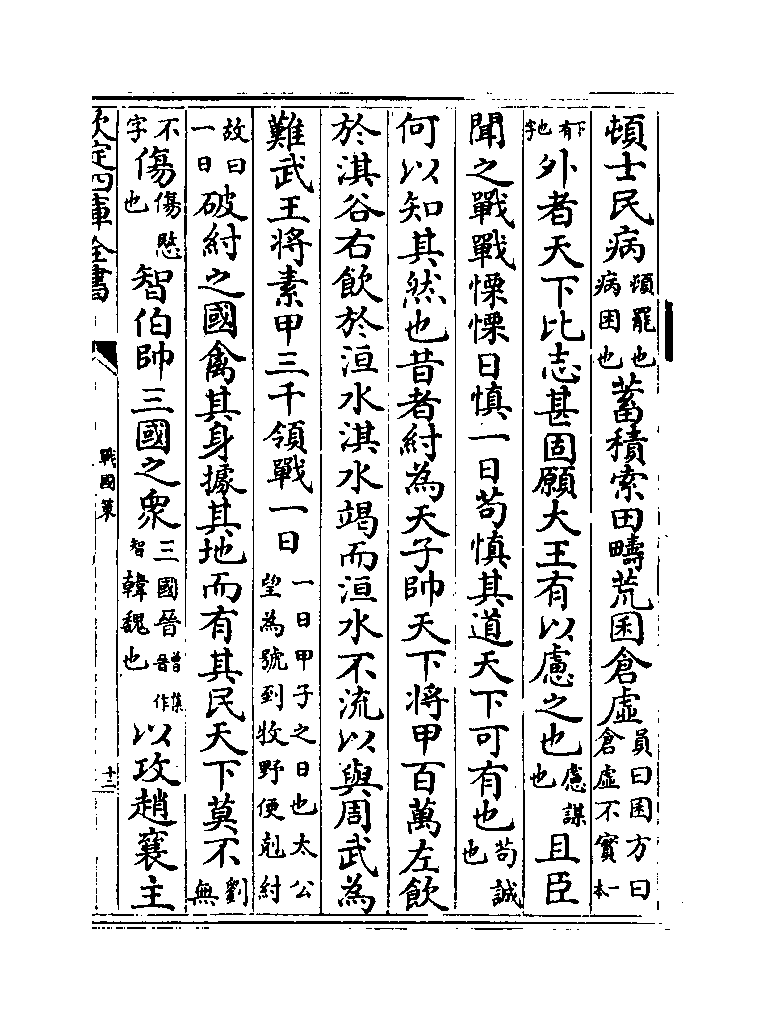 頓士民病頓罷也病困也蓄積索田疇荒囷倉虛員曰囷方曰倉虛不實一本
有下也字外者天下比志甚固願大王有以慮之也慮謀也且臣
聞之戰戰慄慄日慎一日苟慎其道天下可有也苟誠也
何以知其然也昔者紂為天子帥天下將甲百萬左飲
於淇谷右飲於洹水淇水竭而洹水不流以與周武為
難武王將素甲三千領戰一日一日甲子之日也太公望為號到牧野便剋紂
故曰一日破紂之國禽其身據其地而有其民天下莫不劉無
不字傷傷愍也智伯帥三國之衆三國晉曾集晉作智韓魏也以攻趙襄主
欽定四庫全書
戰國策
十二